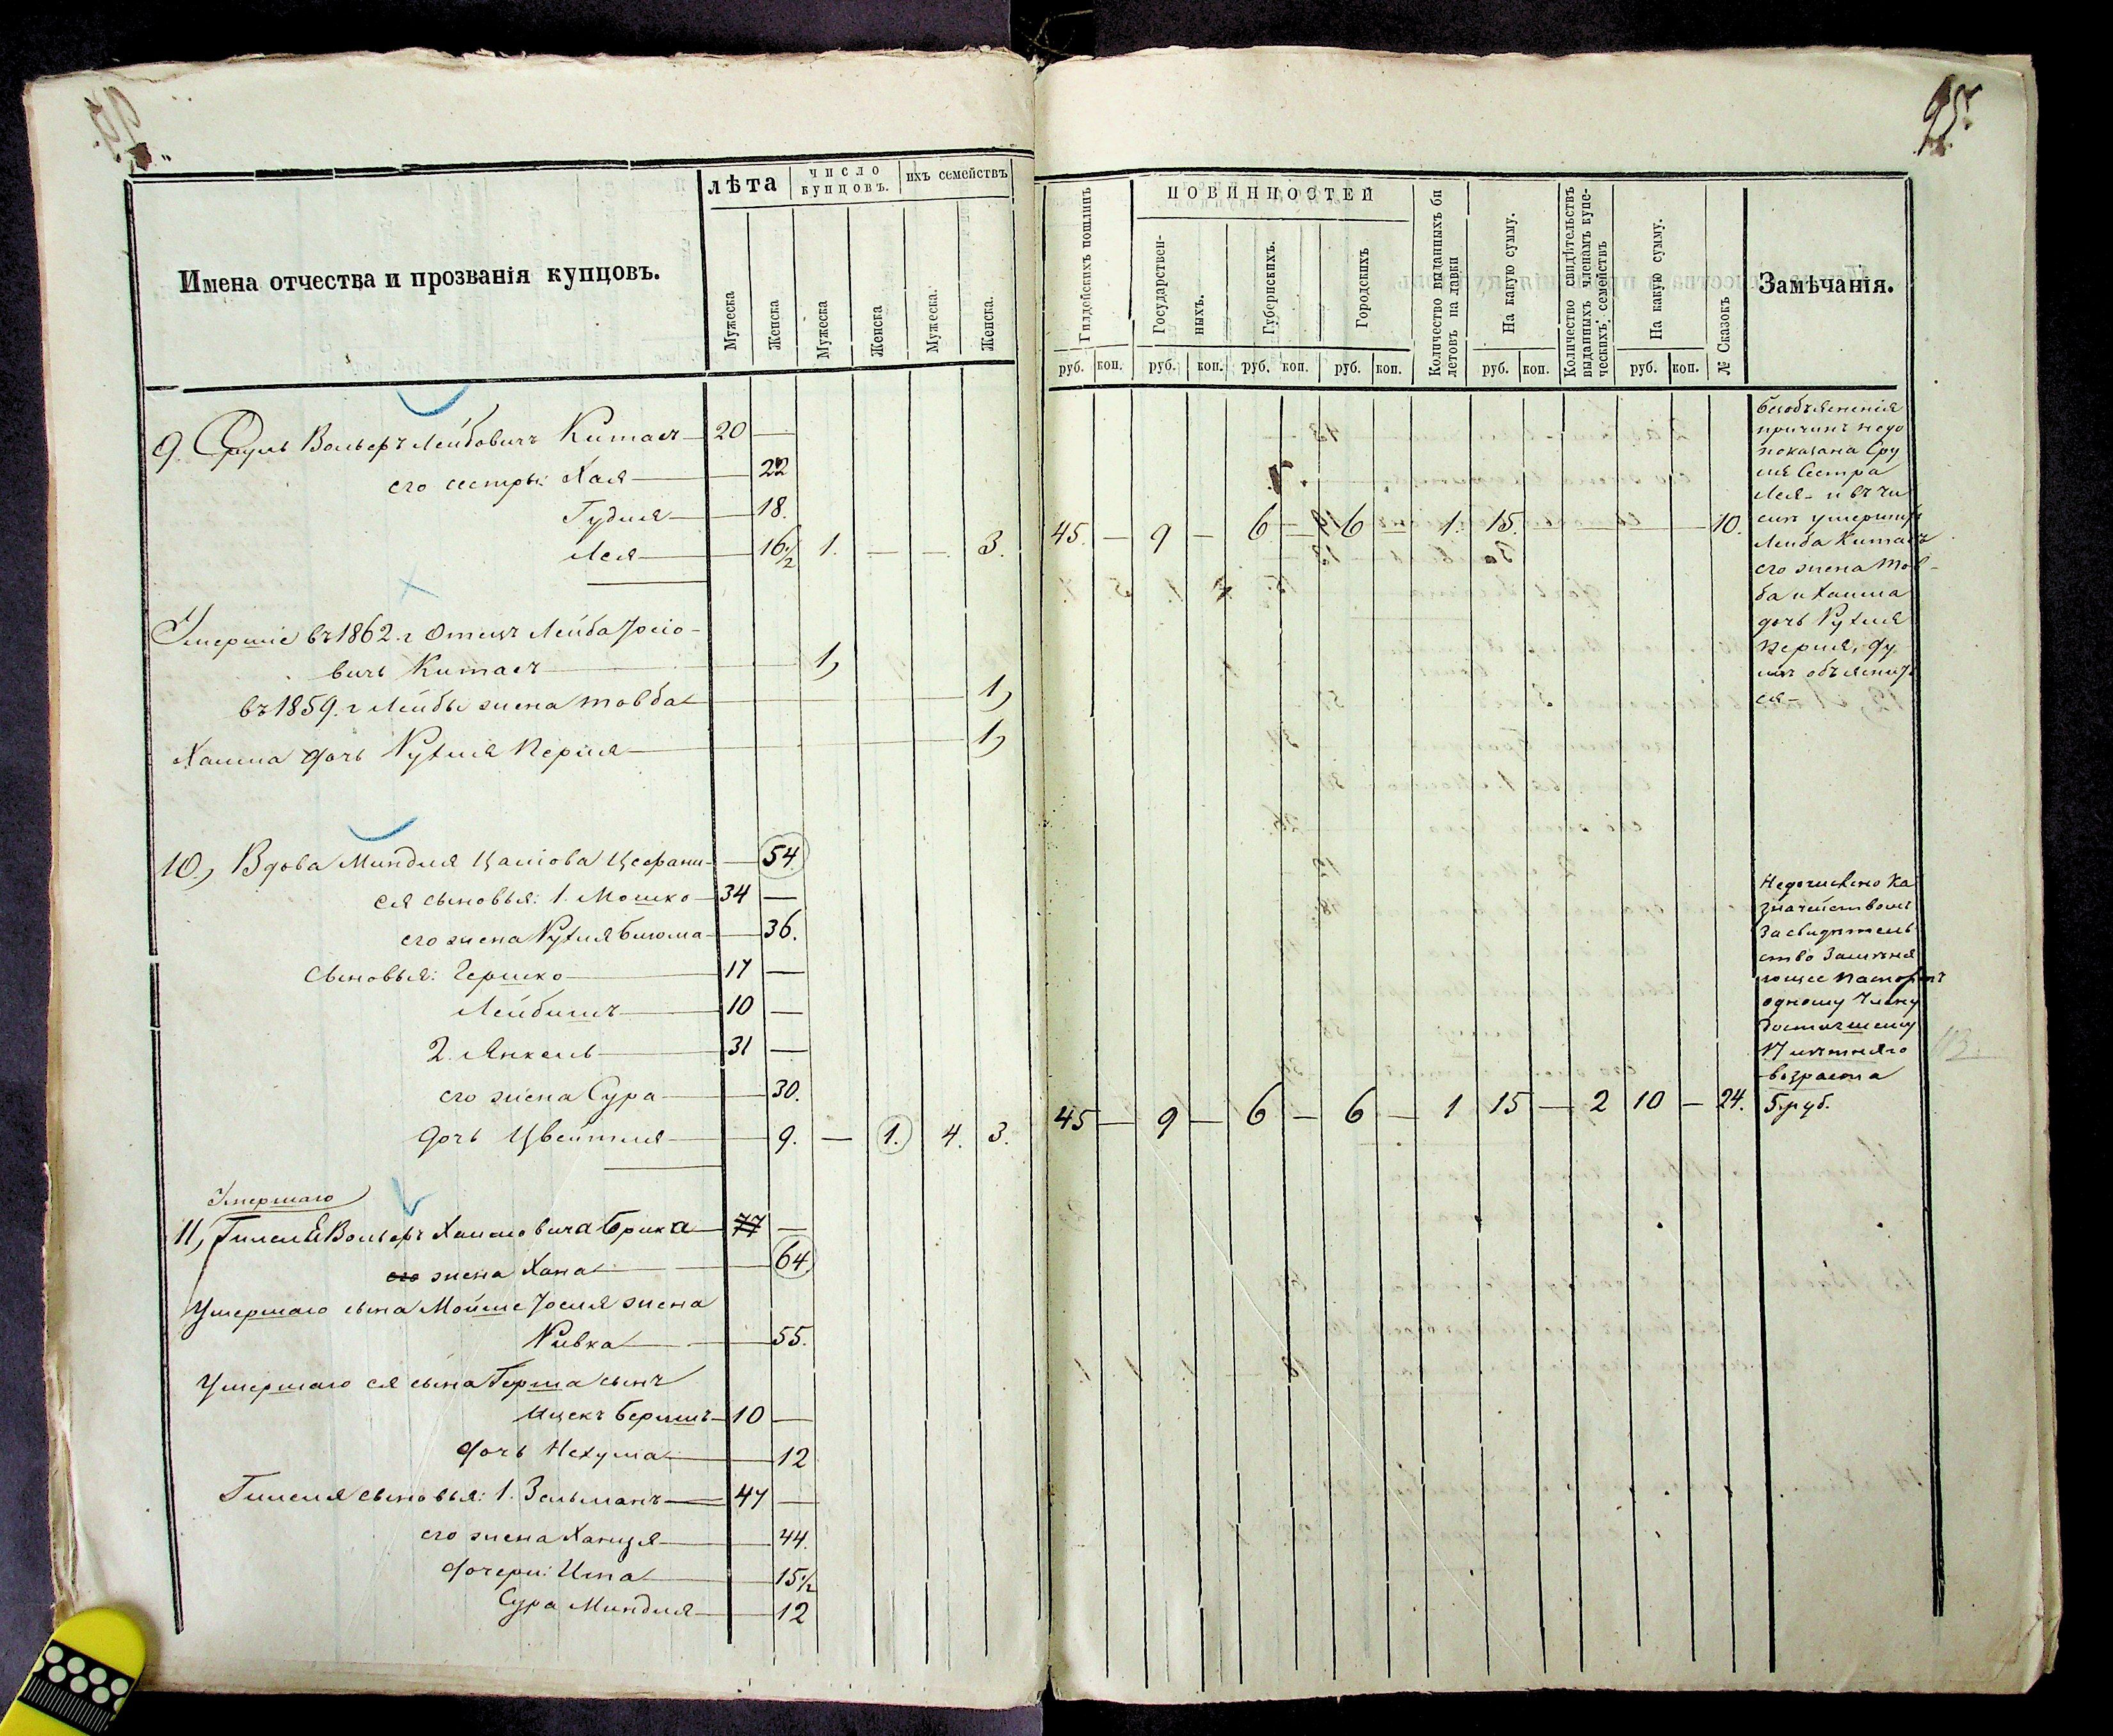 95.
Имена отчества и прозванія купцовъ.
лѣта
число купцовъ.
ихъ семействъ
Мужеска
Женска
Мужеска
Женска
Мужеска.
Женска.
Гилдейскихъ пошлинъ
ПОВИННОСТЕЙ
Государствен-
ныхъ.
Губернскихъ.
Городскихъ
Количество выданныхъ би
летовъ на лавки
На какую сумму.
Количество свидѣтельствъ
выданныхъ членамъ купе-
ческихъ семействъ
На какую сумму.
№ Сказокъ
Замѣчанія.
руб. коп. руб. коп. руб. коп. руб. коп. руб. коп. руб. коп.
9. Сруль Вольфъ Лейбовичъ Китаеъ 20 —
его сестры: Хая — 22
Гудля — 18.
Лея — 16½ 1. — — 3. 45. — 9 — 6 — 6 — 1. 15. — — — 10.
Умершіе въ 1862. г Отецъ Лейба Іосіо-
вичъ Китаеъ — 1,
въ 1859. г Лейбы жена Товба — 1,
Хаима дочь Рухля Перля — 1,
10., Вдова Миндля Цаліова Цефани — 54.
ея сыновья: 1. Мошко — 34 —
его жена Рухля Блюма — 36.
Сыновья: Гершко — 17 —
Лейбишъ — 10 —
2. Янкель — 31 —
его жена Сура — 30.
дочь Цвейтля — 9. — 1. 4. 3. 45 — 9 — 6 — 6 — 1 15 — 2 10 — 24.
Умершаго
11, Гилеля Вольфъ Хаимовича Брика 77 —
его жена Хана — 64
Умершаго сына Мойше Іосля жена
Ривка — 55.
Умершаго ея сына Герша сынъ
Ицекъ Беришъ — 10 —
дочь Нехума — 12
Гилеля сыновья: 1. Зельманъ — 47 —
его жена Ханця — 44.
дочери: Ита — 15½
Сура Миндля — 12
95.
безобъясненія
причинъ недо
показана Сру
ля Сестра
Лея — и въ чи
слѣ умершихъ
Лейба Китаеъ
его жена Тов-
ба и Хаима
дочь Рухля
Перля,
Недочислено Ка
значействомъ
За свидѣтель
ство Замѣня
ющее паспортъ
одному Члену
достигшему
17 лѣтняго
возраста
5 руб.